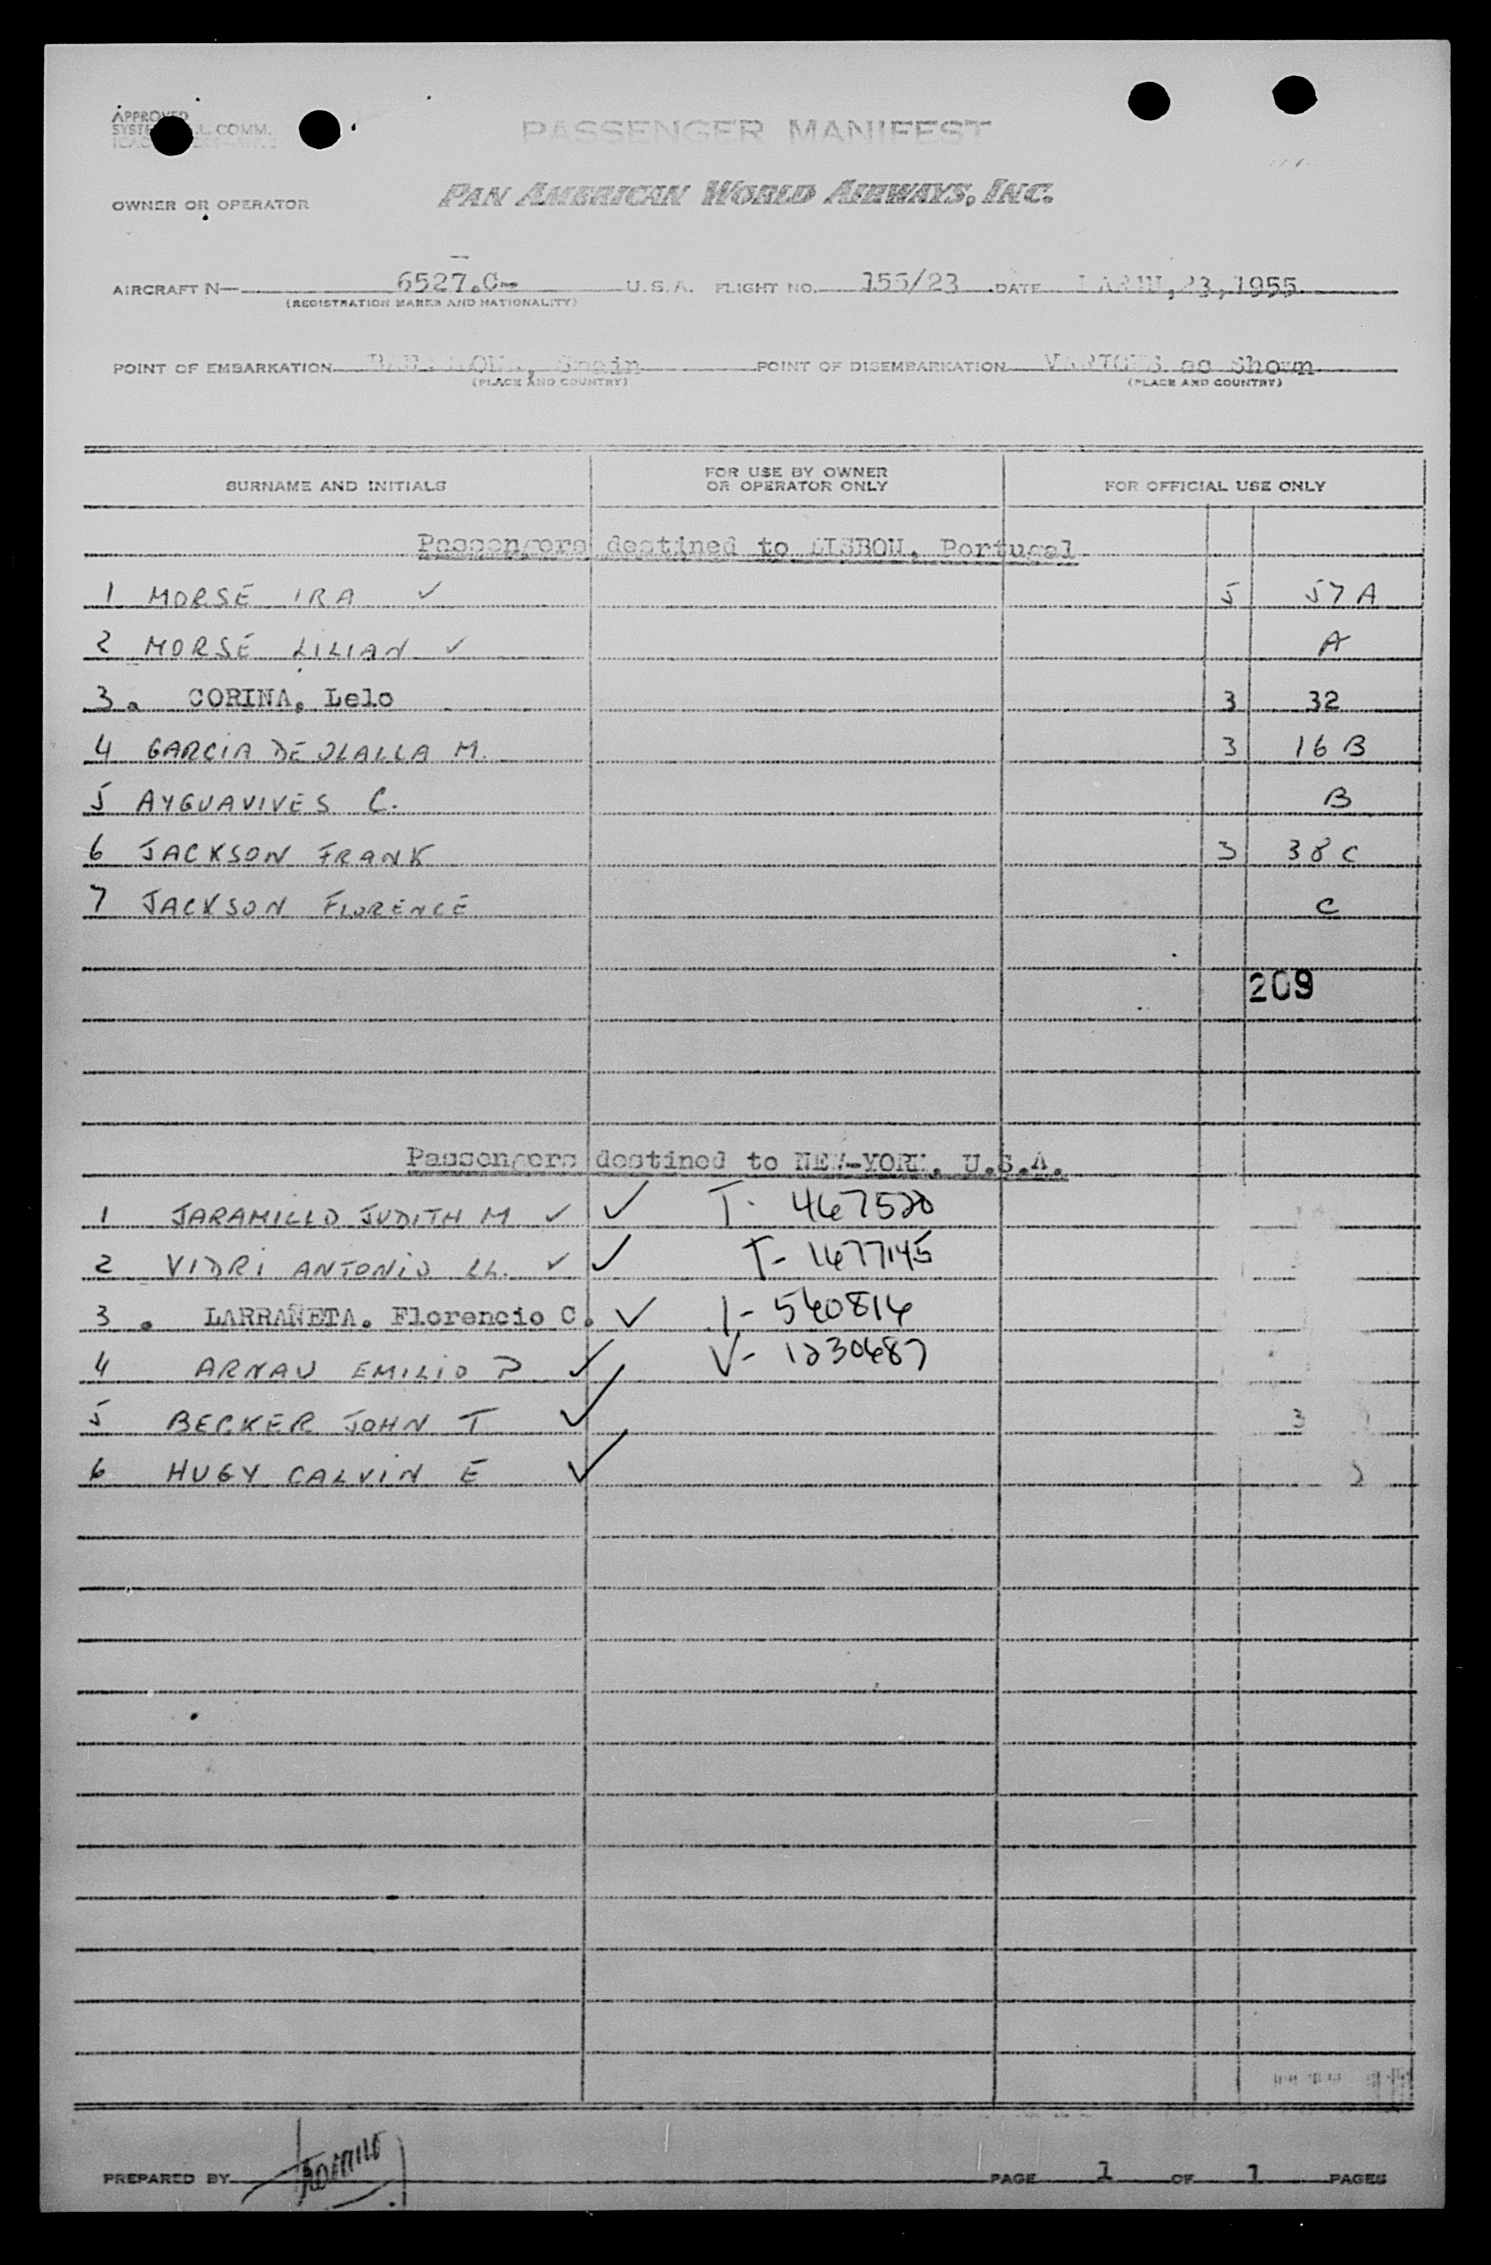 APPROVED
COMM.
PASSENGER MANIFEST
OWNER OR OPERATOR PAN AMERICAN WORLD AIRWAYS, INC.
AIRCRAFT N— 6527.C— U.S.A. FLIGHT NO. 155/23 DATE 23, 1955
(REGISTRATION MARKS AND NATIONALITY)
POINT OF EMBARKATION Spain POINT OF DISEMBARKATION VARIOUS as Shown
(PLACE AND COUNTRY) (PLACE AND COUNTRY)
SURNAME AND INITIALS FOR USE BY OWNER OR OPERATOR ONLY FOR OFFICIAL USE ONLY
Passengers destined to LISBON, Portugal
1 MORSE IRA ✓ 5 57 A
2 MORSE LILIAN ✓ A
3. CORINA, Lelo 3 32
4 GARCIA DE OLALLA M. 3 16 B
5 AYGUAVIVES C. B
6 JACKSON FRANK 3 38 C
7 JACKSON FLORENCE C
209
Passengers destined to NEW-YORK, U.S.A.
1 JARAMILLO JUDITH M ✓ ✓ T- 467520
2 VIDRI ANTONIO LL. ✓ ✓ T- 1677145
3. LARRAÑETA, Florencio C. ✓ I- 540814
4 ARNAU EMILIO P ✓ V- 1230487
5 BECKER JOHN T ✓ 3
6 HUGY CALVIN E ✓
PREPARED BY PAGE 1 OF 1 PAGES